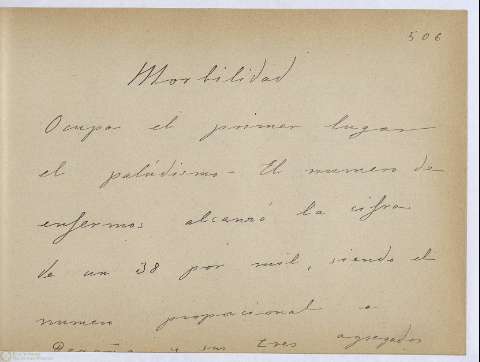 506
Morbilidad
Ocupa el primer lugar
el paludismo - El numero de
enfermos alcanzó la cifra
de un 38 por mil, siendo el
numero proporcional a
y sus tres agregados